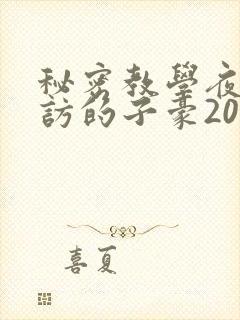 秘密教學夜
訪的子豪20
喜夏